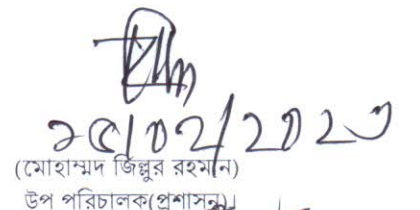 ১৫/০২/২০২৩
(মোহাম্মদ জিল্লুর রহমান)
উপ পরিচালক(প্রশাসন)